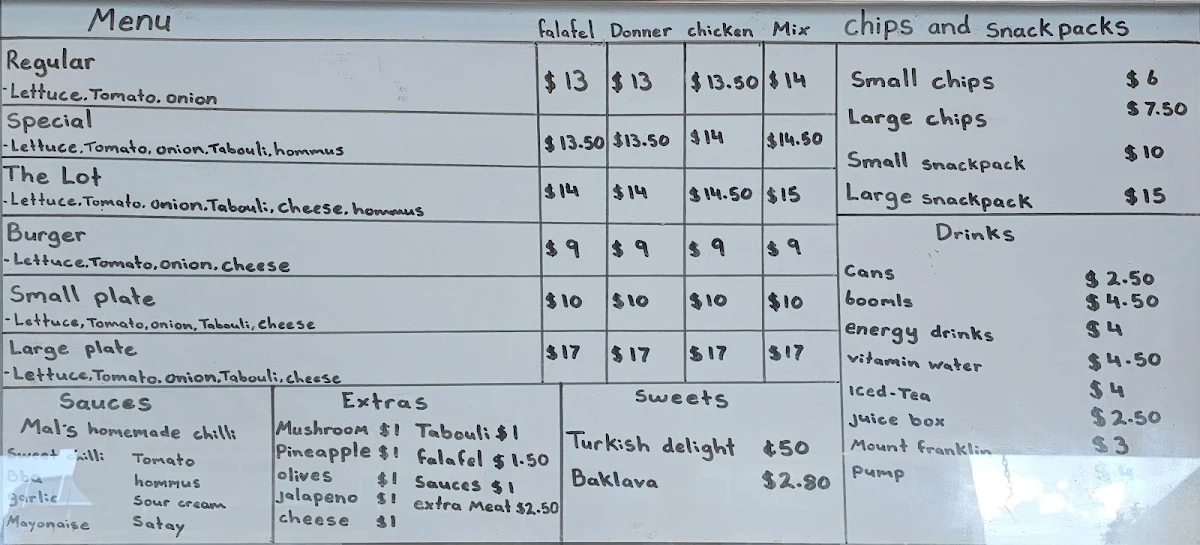 Menu falafel Donner chicken Mix
Regular $13 $13 $13.50 $14
-Lettuce.Tomato.onion
Special $13.50 $13.50 $14 $14.50
-Lettuce,Tomato,onion,Tabouli,hommus
The Lot $14 $14 $14.50 $15
-Lettuce,Tomato.onion.Tabouli,cheese,hommus
Burger $9 $9 $9 $9
-Lettuce,Tomato,onion,cheese
Small plate $10 $10 $10 $10
-Lettuce,Tomato,onion,Tabouli,cheese
Large plate $17 $17 $17 $17
-Lettuce,Tomato.onion,Tabouli,cheese
Chips and Snackpacks
Small chips $6
Large chips $7.50
Small snackpack $10
Large snackpack $15
Drinks
Cans $2.50
boomls $4.50
energy drinks $4
vitamin water $4.50
Iced-Tea $4
juice box $2.50
Mount franklin $3
Pump $4
Sauces
Mal's homemade chilli
Sweet chilli Tomato
Bbq hommus
garlic Sour cream
Mayonaise Satay
Extras
Mushroom $1 Tabouli $1
Pineapple $1 falafel $1.50
olives $1 Sauces $1
Jalapeno $1 extra Meat $2.50
cheese $1
Sweets
Turkish delight ¢50
Baklava $2.80